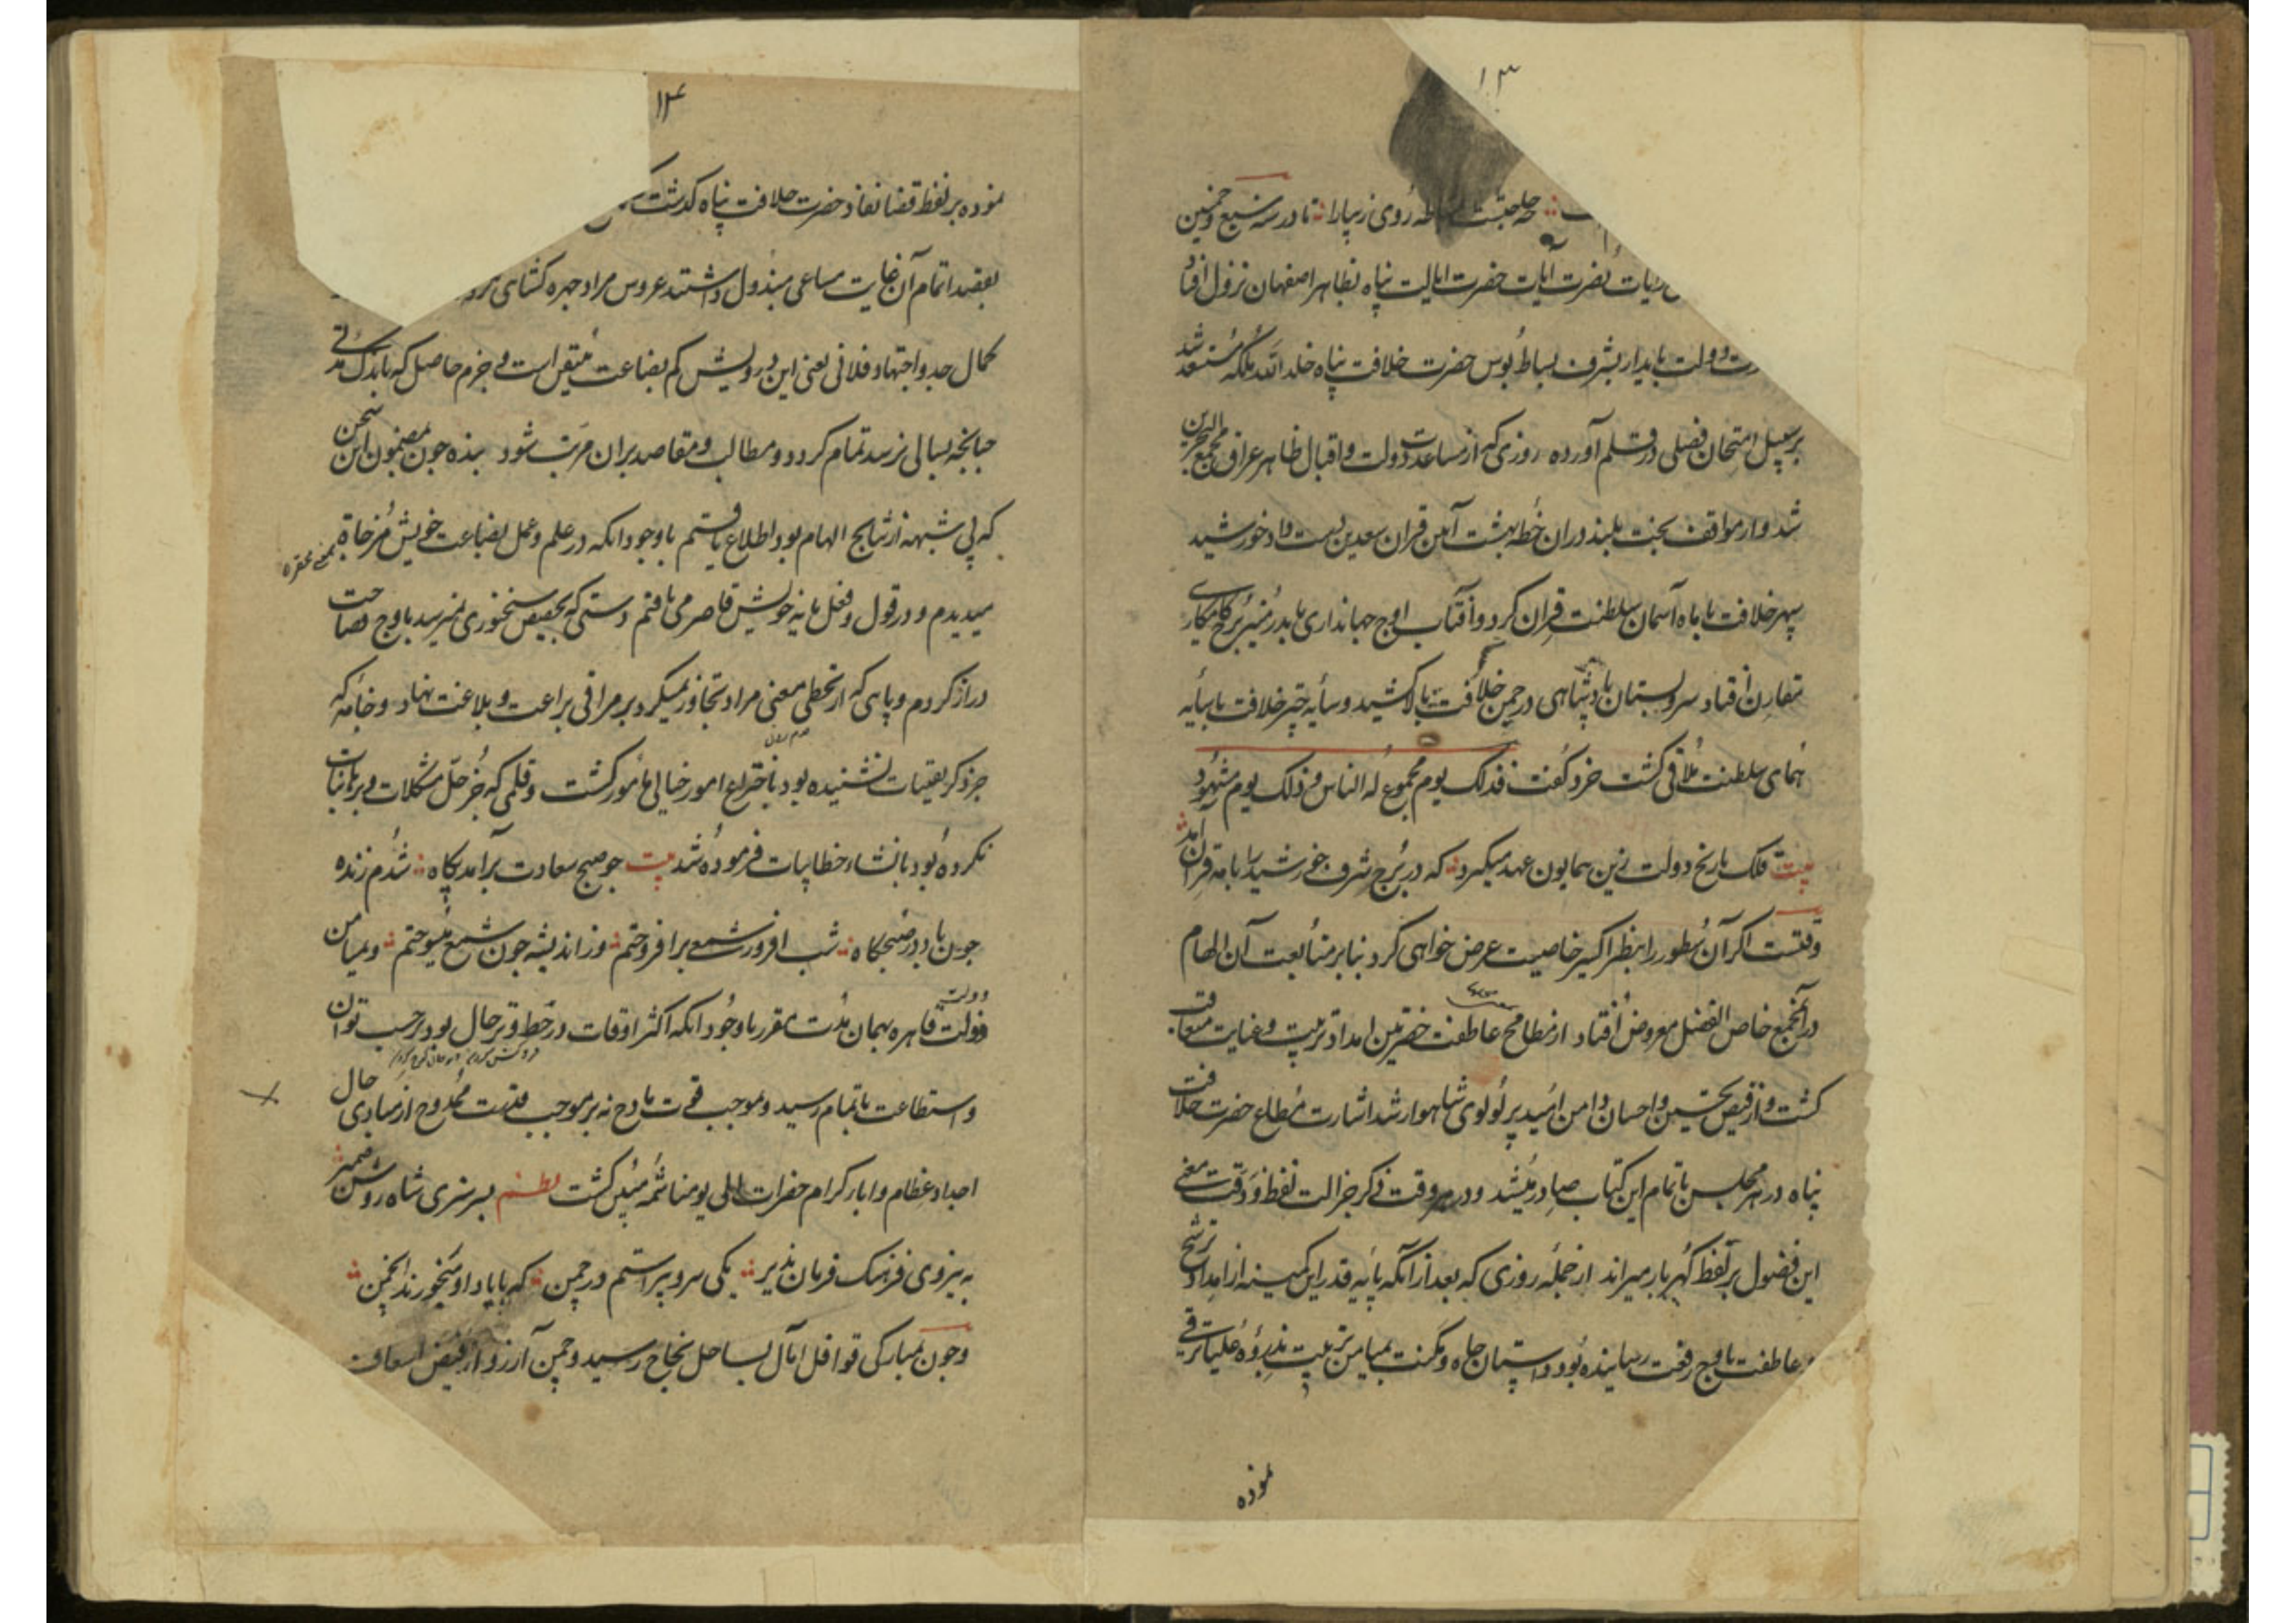 ۱۳
چه حاجتست مشاطه روی زیبارا تا در سنه سبع و خمسین
رایات نصرت آیات حضرت ایالت پناه بظاهر اصفهان نزول افتاد
دولت بایدار بشرف بساط بوس حضرت خلافت پناه خلد الله ملکه مستعد شد
بر سبیل امتحان فصلی در قلم آورده روزی که از مساعدت دولت و اقبال ظاهر عراق مجمع البحرین
شد و از مواقف بخت بلند دران خطه بهشت آیین قران سعدین دست داد خورشید
سپهر خلافت با ماه آسمان سلطنت قران کرد و آفتاب اوج جهانداری با بدر منیر برج کامکاری
مقارن افتاد سرو بستان پادشاهی در چمن خلافت بالا کشید و سایه چتر خلافت با سایه
همای سلطنت ملاقی کشت خرد کفت فذلک یوم مجموع له الناس و ذلک یوم مشهود
بیت فلک تاریخ دولت زین همایون عهد میکیرد که در برج شرف خورشید را با مه قران آمد
وقتست اکر آن سطور را بنظر اکسیر خاصیت عرض خواهی کرد بنابر متابعت آن الهام
در آن مجمع خاص الفضل معروض افتاد از مطامح عاطفت حضرتین امداد تربیت و غایت متعاقب
کشت و از فیض تحسین و احسان دامن امید پر لولوی شاهوار شد اشارت مطاع حضرت خلافت
پناه در هر مجلس باتمام این کتاب صادر میشد و در هر وقت ذکر جزالت لفظ و دقت معنی
این فضول بر لفظ کهربار میراند از جمله روزی که بعد از آنکه پایه قدر این کمینه از امداد ترشح
عاطفت باوج رفعت رسانیده بود و داستان جاه و مکنت بمیامن تربیت بذروه علیا ترقی
نموده
۱۴
نموده بر لفظ قضا نفاذ حضرت خلافت پناه کذشت که
بعقبد اتمام آن غایت مساعی مبذول داشتند عروس مراد چهره کشای
کمال جد و اجتهاد فلانی یعنی این درویش کم بضاعت متیقن است و جزم حاصل که باندک مدتی
چنانچه بسالی نرسد تمام کردد و مطالب و مقاصد بران مرتب شود بنده چون مضمون این سخن
که بی شبهه از نتایج الهام بود اطلاع یافتم باوجود انکه در علم و عمل بضاعت خویش مزجاة
میدیدم و در قول و فعل مایه خویش قاصر می یافتم دستی که بحضیض سخنوری نمیرسد باوج فصاحت
دراز کردم و پایی که از تخطی بمعنی مراد تجاوز نمیکرد بر مراقی براعت و بلاغت نهاد و خامه که
جز ذکر یقینیات نشنیده بود باختراع امور خیالی مامور کشت و قلمی که جز حل مشکلات و براهین اثبات
نکرده بود بانشاء خطابیات فرموده شد بیت چو صبح سعادت برآمد پکاه شدم زنده
چون باد در صبحکاه شب افروز شمعی برافروختم وز اندیشه چون شمع میسوختم و بمیامن
دولت قاهره بهمان مدت مقرر باوجود انکه اکثر اوقات در خط و ترحال بود بر حسب توان
و استطاعت باتمام رسید و موجب قوت مادح نه بر موجب قدرت ممدوح از مبادی حال
اجداد عظام و اباء کرام حضرات الی یومنا ثمه مبین کشت نظم بسر سبزی شاه روشن ضمیر
به نیروی فرهنک فرمان پذیر یکی سرو پیراستم در چمن که با یاد او می خورند انجمن
و چون بمبارکی قوافل آمال بساحل نجاح رسید و چمن آرزو از فیض اسعاف